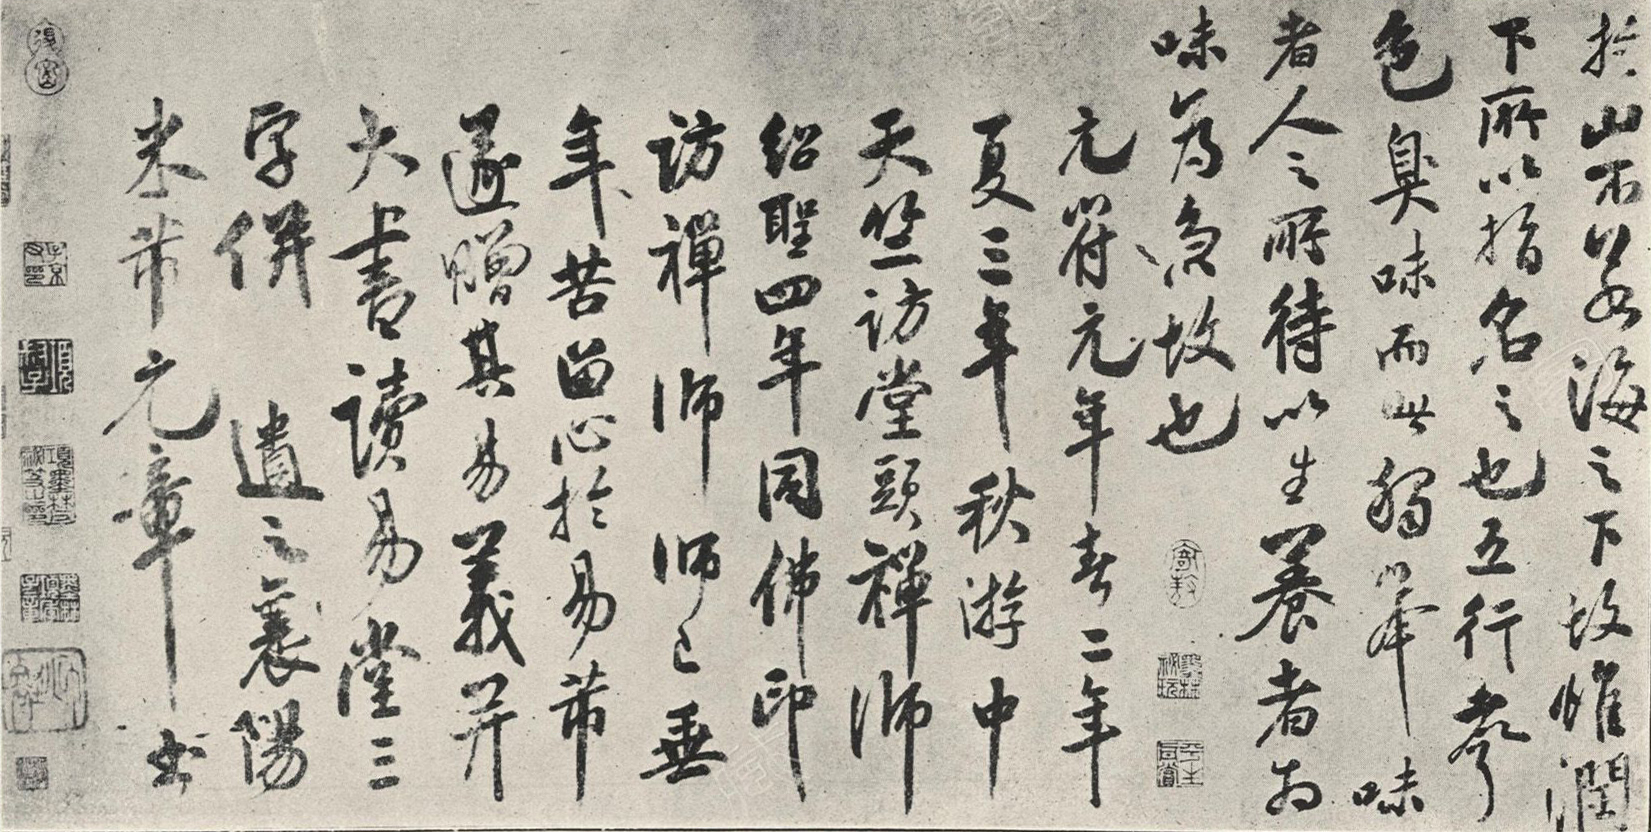 於山不若海之下故惟潤
下所以指名之也五行
色臭味而此獨舉味
者人之所待以生養者
味為急故也
元符元年春二年
夏三年秋游中
天竺訪堂頭禪師
紹聖四年同佛印
訪禪師師已垂
年苦留心於易芾
遂贈其易義并
大書讀易堂三
字併遺之襄陽
米芾元章書